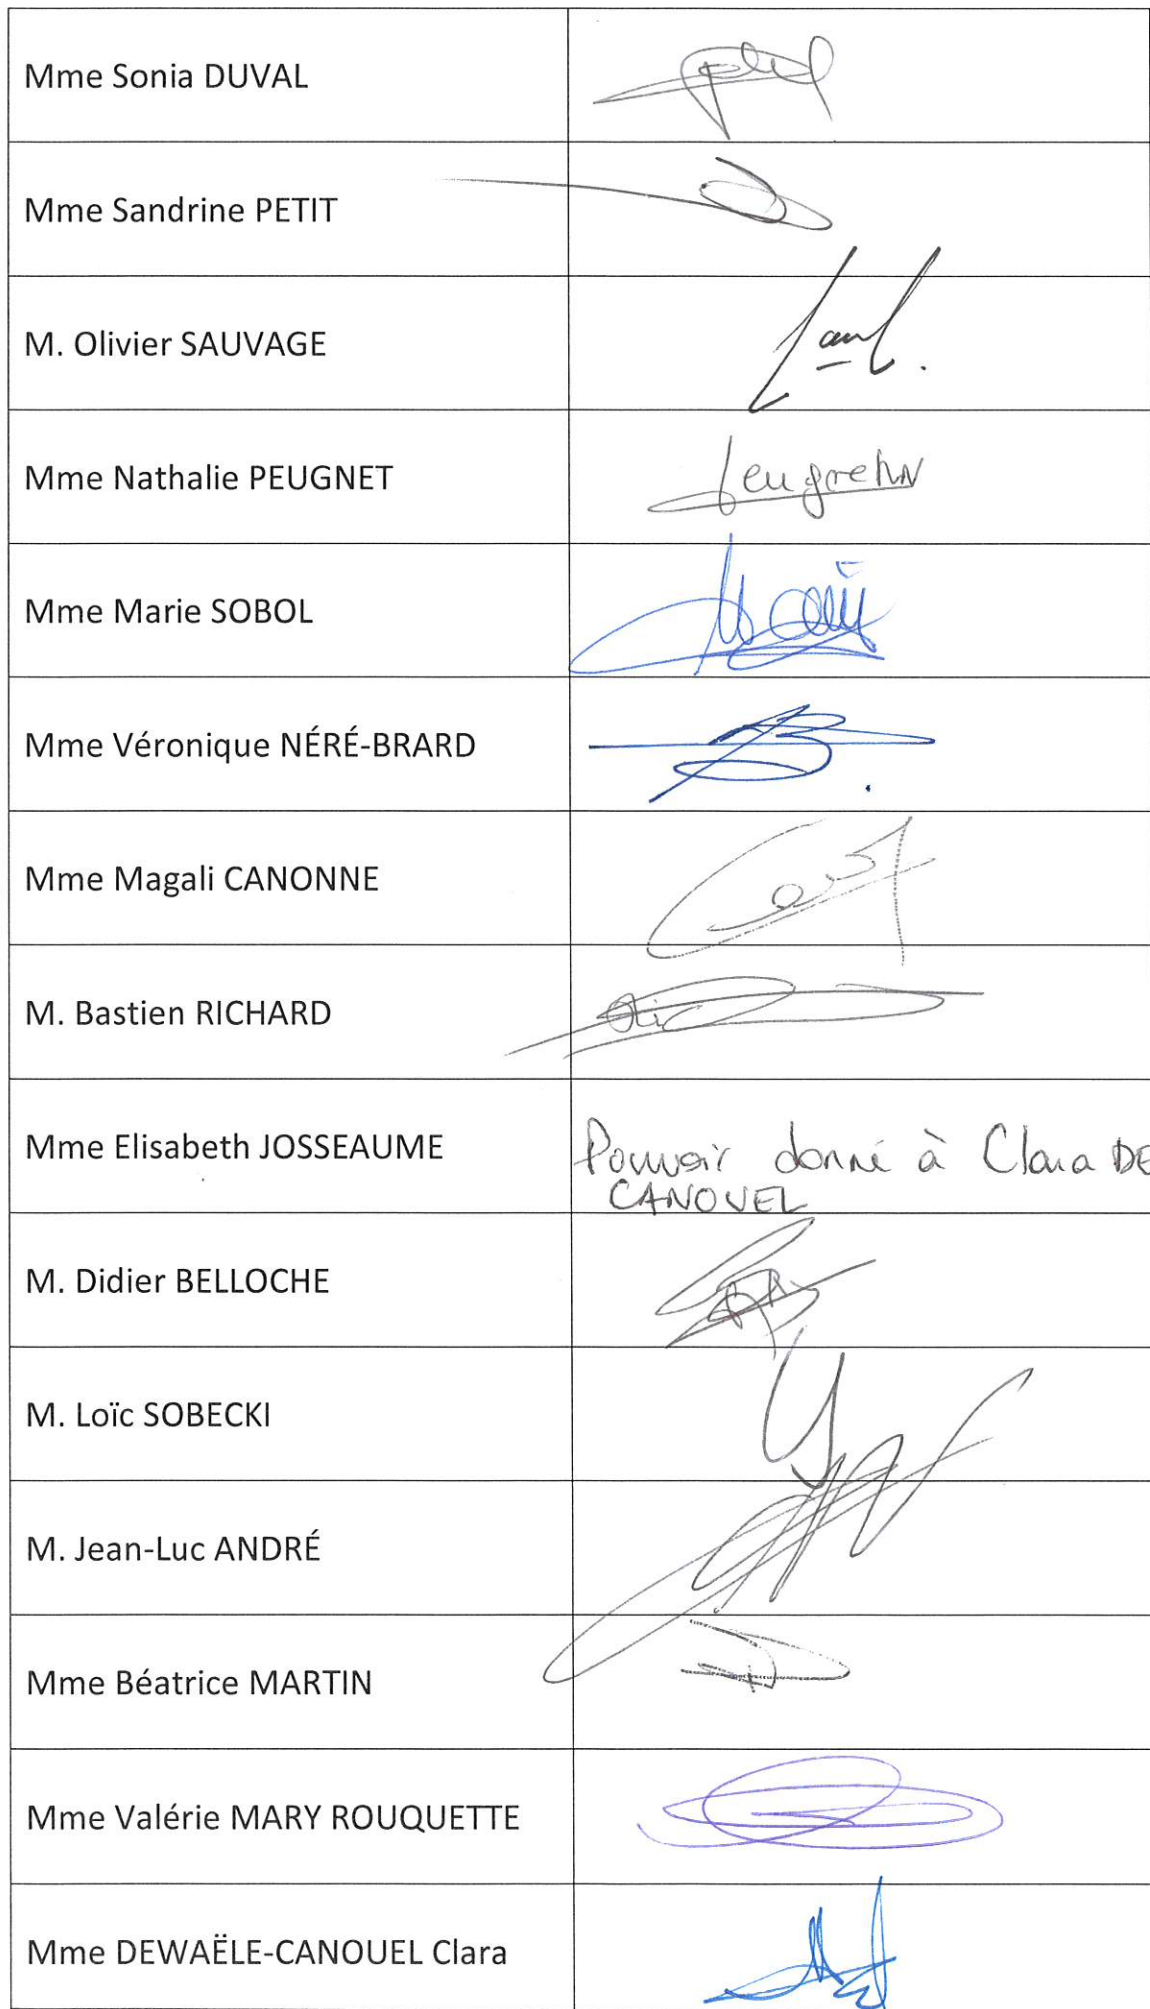 Mme Sonia DUVAL
Mme Sandrine PETIT
M. Olivier SAUVAGE
Mme Nathalie PEUGNET
Mme Marie SOBOL
Mme Véronique NÉRÉ-BRARD
Mme Magali CANONNE
M. Bastien RICHARD
Mme Elisabeth JOSSEAUME
Pouvoir donné à Clara DE
CANOUEL
M. Didier BELLOCHE
M. Loïc SOBECKI
M. Jean-Luc ANDRÉ
Mme Béatrice MARTIN
Mme Valérie MARY ROUQUETTE
Mme DEWAËLE-CANOUEL Clara